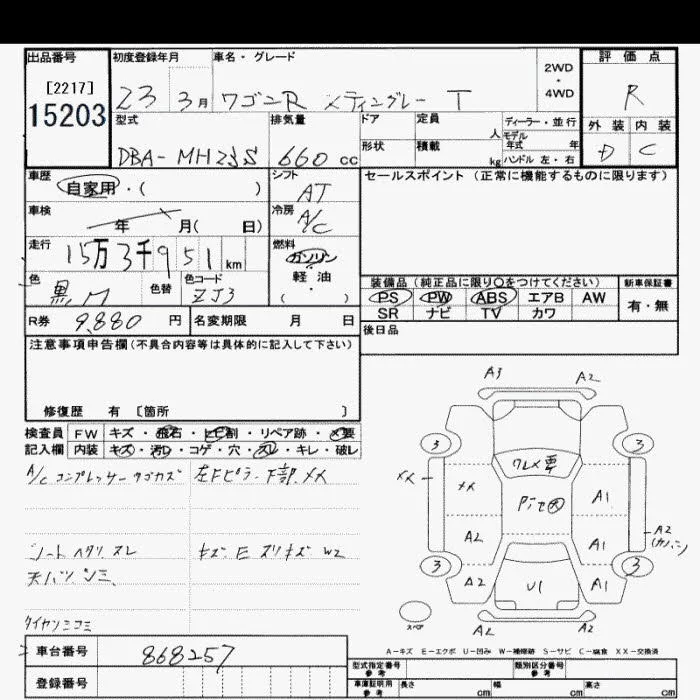 出品番号 初度登録年月 車名・グレード 2WD・4WD 評価点
[2217] 15203 23 3月 ワゴンR スティングレー T R
型式 排気量 ドア 定員 人 ディーラー・並行 外装 内装
DBA-MH23S 660cc 形状 積載 kg モデル年式 年 ハンドル 左・右 D C
車歴 自家用・( ) シフト AT セールスポイント(正常に機能するものに限ります)
車検 年 月( 日) 冷房 A/C
走行 15万3千951km 燃料 ガソリン・軽油( )
色 黒M 色替 色コード ZJ3
装備品(純正品に限り○をつけてください) 新車保証書
PS PW ABS エアB AW 有・無
SR ナビ TV カワ
R券 9,880円 名変期限 月 日 後日品
注意事項申告欄(不具合内容等は具体的に記入して下さい)
修復歴 有 [箇所 ]
検査員 FW キズ・飛石・ヒビ割・リペア跡・要
記入欄 内装 キズ・汚レ・コゲ・穴・スレ・キレ・破レ
A/C コンプレッサー 左Fピラー下部メメ
シート スレ キズ E スリキズ W2
A3 A2
3 3
XX ワレ×要
A1
A2 A1 A2
3 3
A2 U1 A1
スペア A2 A2
A-キズ E-エクボ U-凹み W-補修跡 S-サビ C-腐食 XX-交換済
車台番号 868257 型式指定番号 参考 類別区分番号 参考
登録番号 車庫証明用 参考 長さ cm 幅 cm 高さ cm